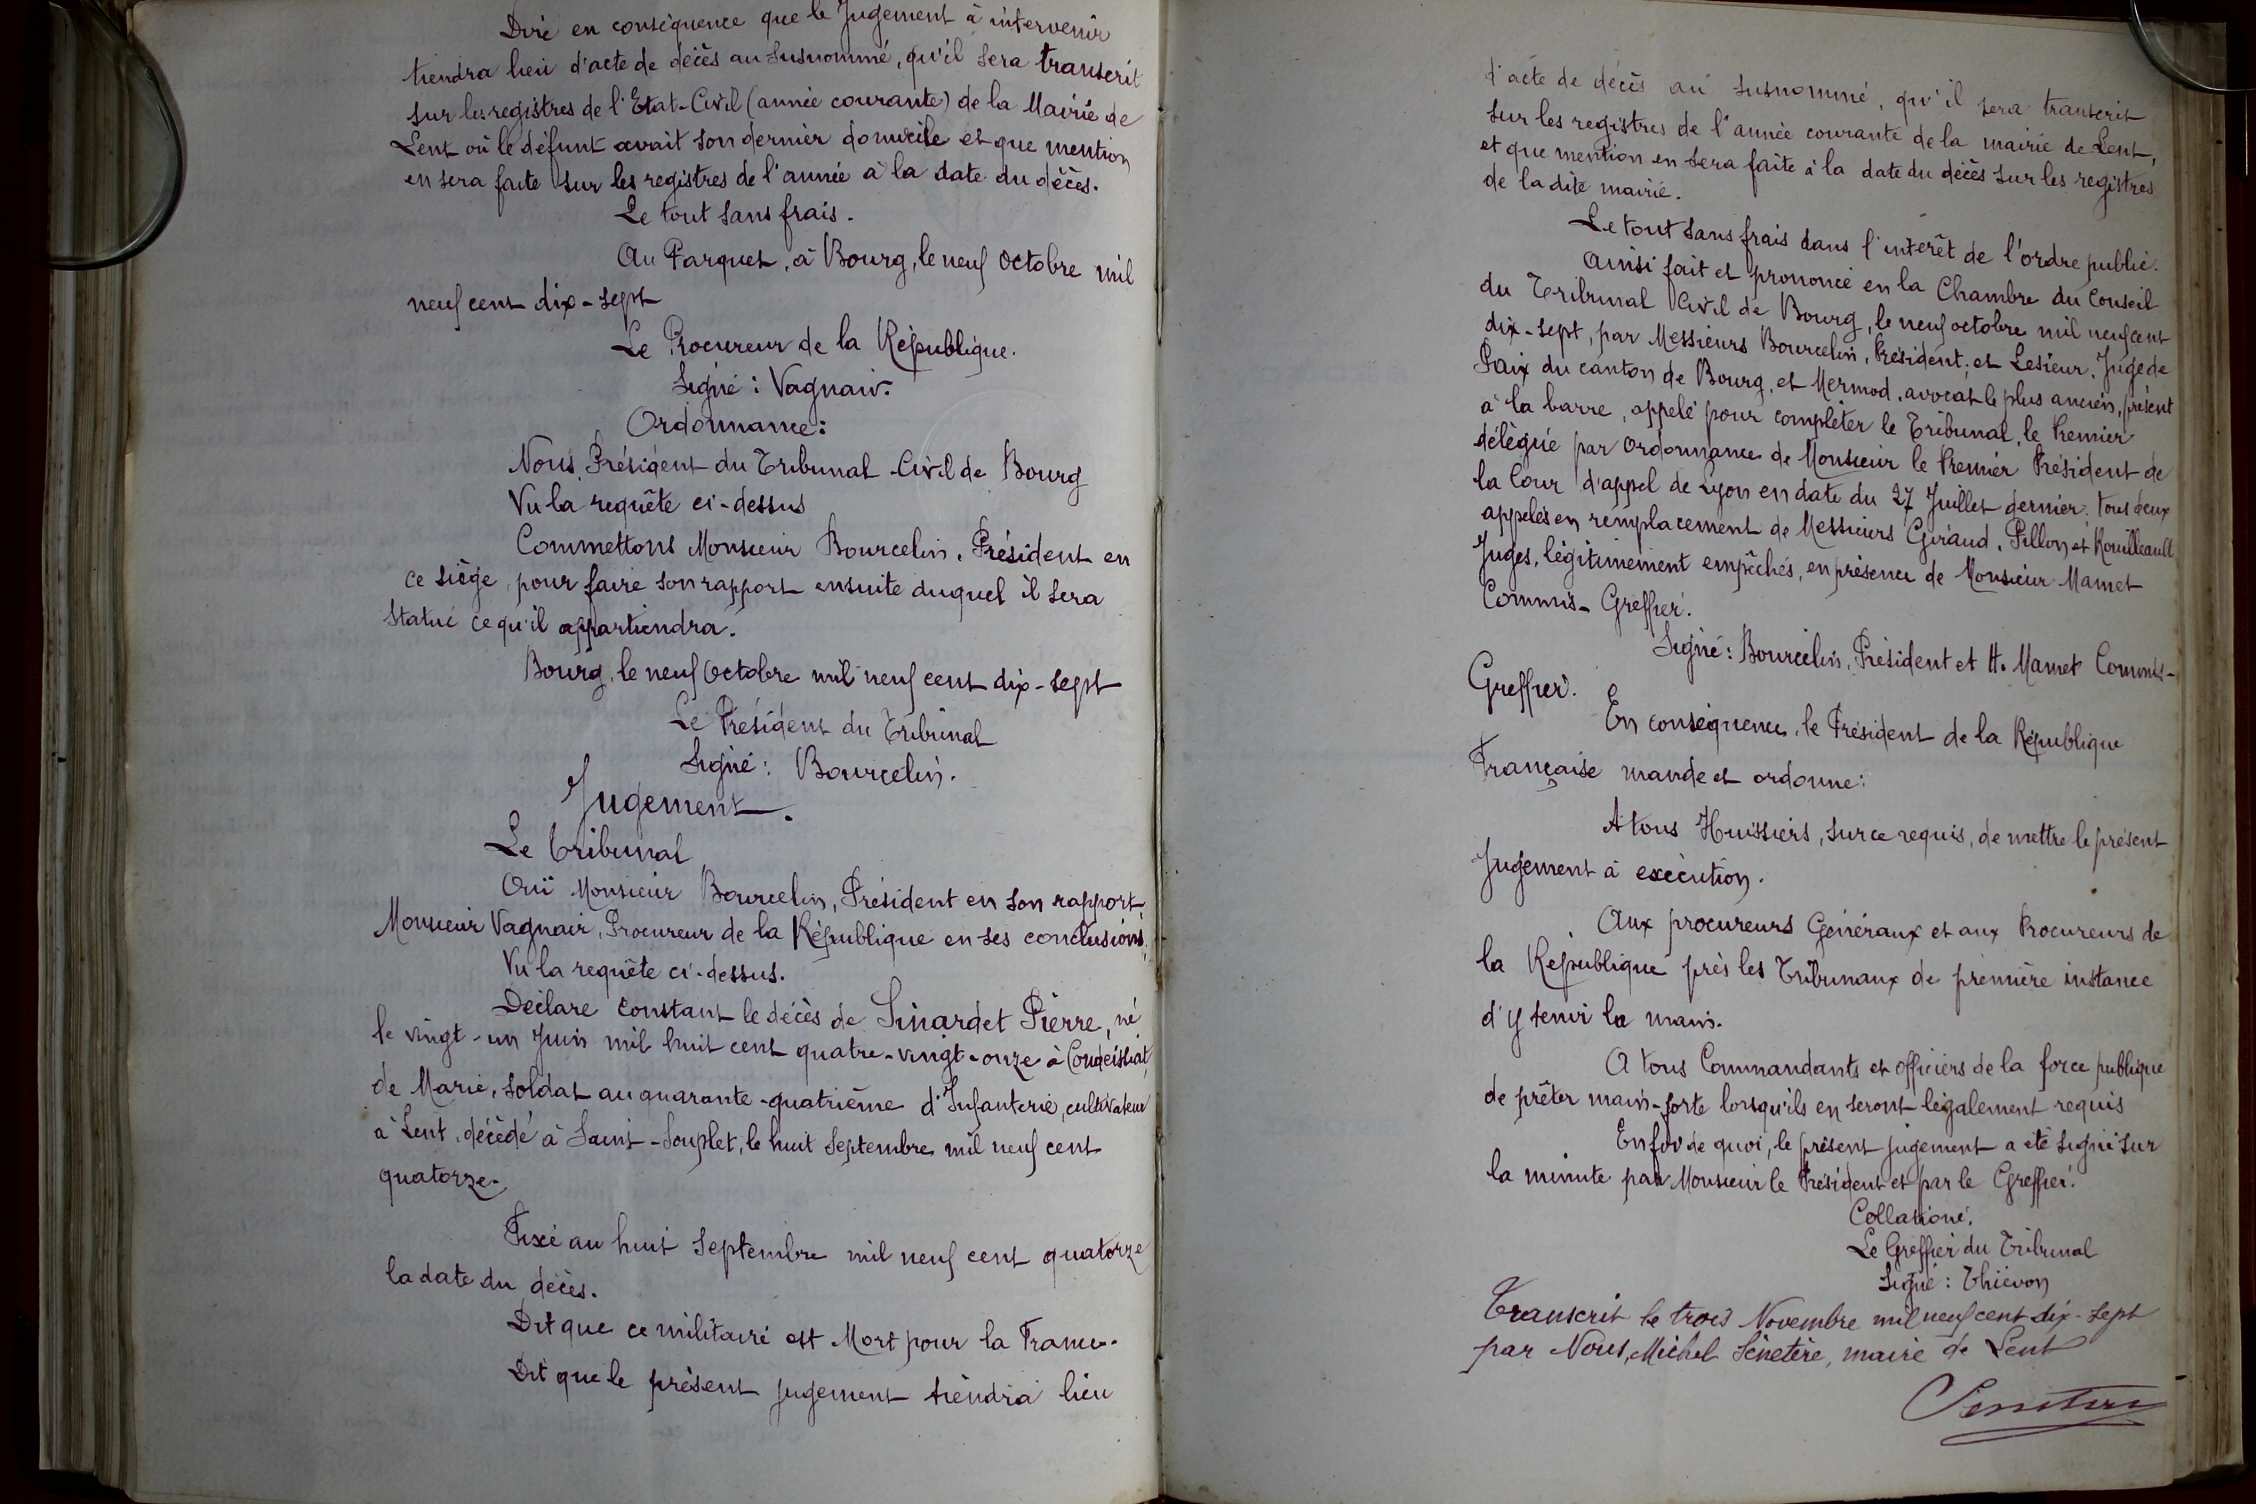 Dire en conséquence que le Jugement à intervenir
tiendra lieu d'acte de décès au susnommé, qu'il sera transcrit
sur les registres de l'Etat-Civil (année courante) de la Mairie de
Lent où le défunt avait son dernier domicile et que mention
en sera faite sur les registres de l'année à la date du décès.
Le tout sans frais.
Au Parquet, à Bourg, le neuf octobre mil
neuf cent dix-sept
Le Procureur de la République.
Signé : Vagnair.
Ordonnance :
Nous, Président du Tribunal Civil de Bourg
Vu la requête ci-dessus
Commettons Monsieur Bourcelin, Président en
ce siège, pour faire son rapport ensuite duquel il sera
statué ce qu'il appartiendra.
Bourg, le neuf Octobre mil neuf cent dix-sept
Le Président du Tribunal
Signé : Bourcelin.
Jugement.
Le Tribunal
Ouï Monsieur Bourcelin, Président en son rapport,
Monsieur Vagnair, Procureur de la République en ses conclusions,
Vu la requête ci-dessus.
Déclare constant le décès de Sinardet Pierre, né
le vingt-un Juin mil huit cent quatre-vingt-onze à Condeissiat,
de Marie, soldat au quarante-quatrième d'Infanterie, cultivateur
à Lent, décédé à Saint-Souplet, le huit Septembre mil neuf cent
quatorze.
Fixe au huit Septembre mil neuf cent quatorze
la date du décès.
Dit que ce militaire est Mort pour la France.
Dit que le présent jugement tiendra lieu
d'acte de décès au susnommé, qu'il sera transcrit
sur les registres de l'année courante de la mairie de Lent,
et que mention en sera faite à la date du décès sur les registres
de la dite mairie.
Le tout sans frais dans l'intérêt de l'ordre public.
Ainsi fait et prononcé en la Chambre du Conseil
du Tribunal Civil de Bourg, le neuf octobre mil neuf cent
dix-sept, par Messieurs Bourcelin, Président, et Lesieur, Juge de
Paix du canton de Bourg, et Mermod, avocat le plus ancien, présent
à la barre, appelé pour compléter le Tribunal, le Premier
délégué par ordonnance de Monsieur le Premier Président de
la Cour d'appel de Lyon en date du 27 Juillet dernier, tous deux
appelés en remplacement de Messieurs Giraud, Pillon et Rouilleault
Juges, légitimement empêchés, en présence de Monsieur Mamet
Commis-Greffier.
Signé : Bourcelin, Président et H. Mamet Commis-
Greffier.
En conséquence, le Président de la République
Française mande et ordonne :
A tous Huissiers, sur ce requis, de mettre le présent
Jugement à exécution.
Aux procureurs Généraux et aux Procureurs de
la République près les Tribunaux de première instance
d'y tenir la main.
A tous Commandants et officiers de la force publique
de prêter main-forte lorsqu'ils en seront légalement requis
En foi de quoi, le présent jugement a été signé sur
la minute par Monsieur le Président et par le Greffier.
Collationé.
Le Greffier du Tribunal
Signé : Thiévon
Transcrit le trois Novembre mil neuf cent dix-sept
par Nous, Michel Sénetère, maire de Lent